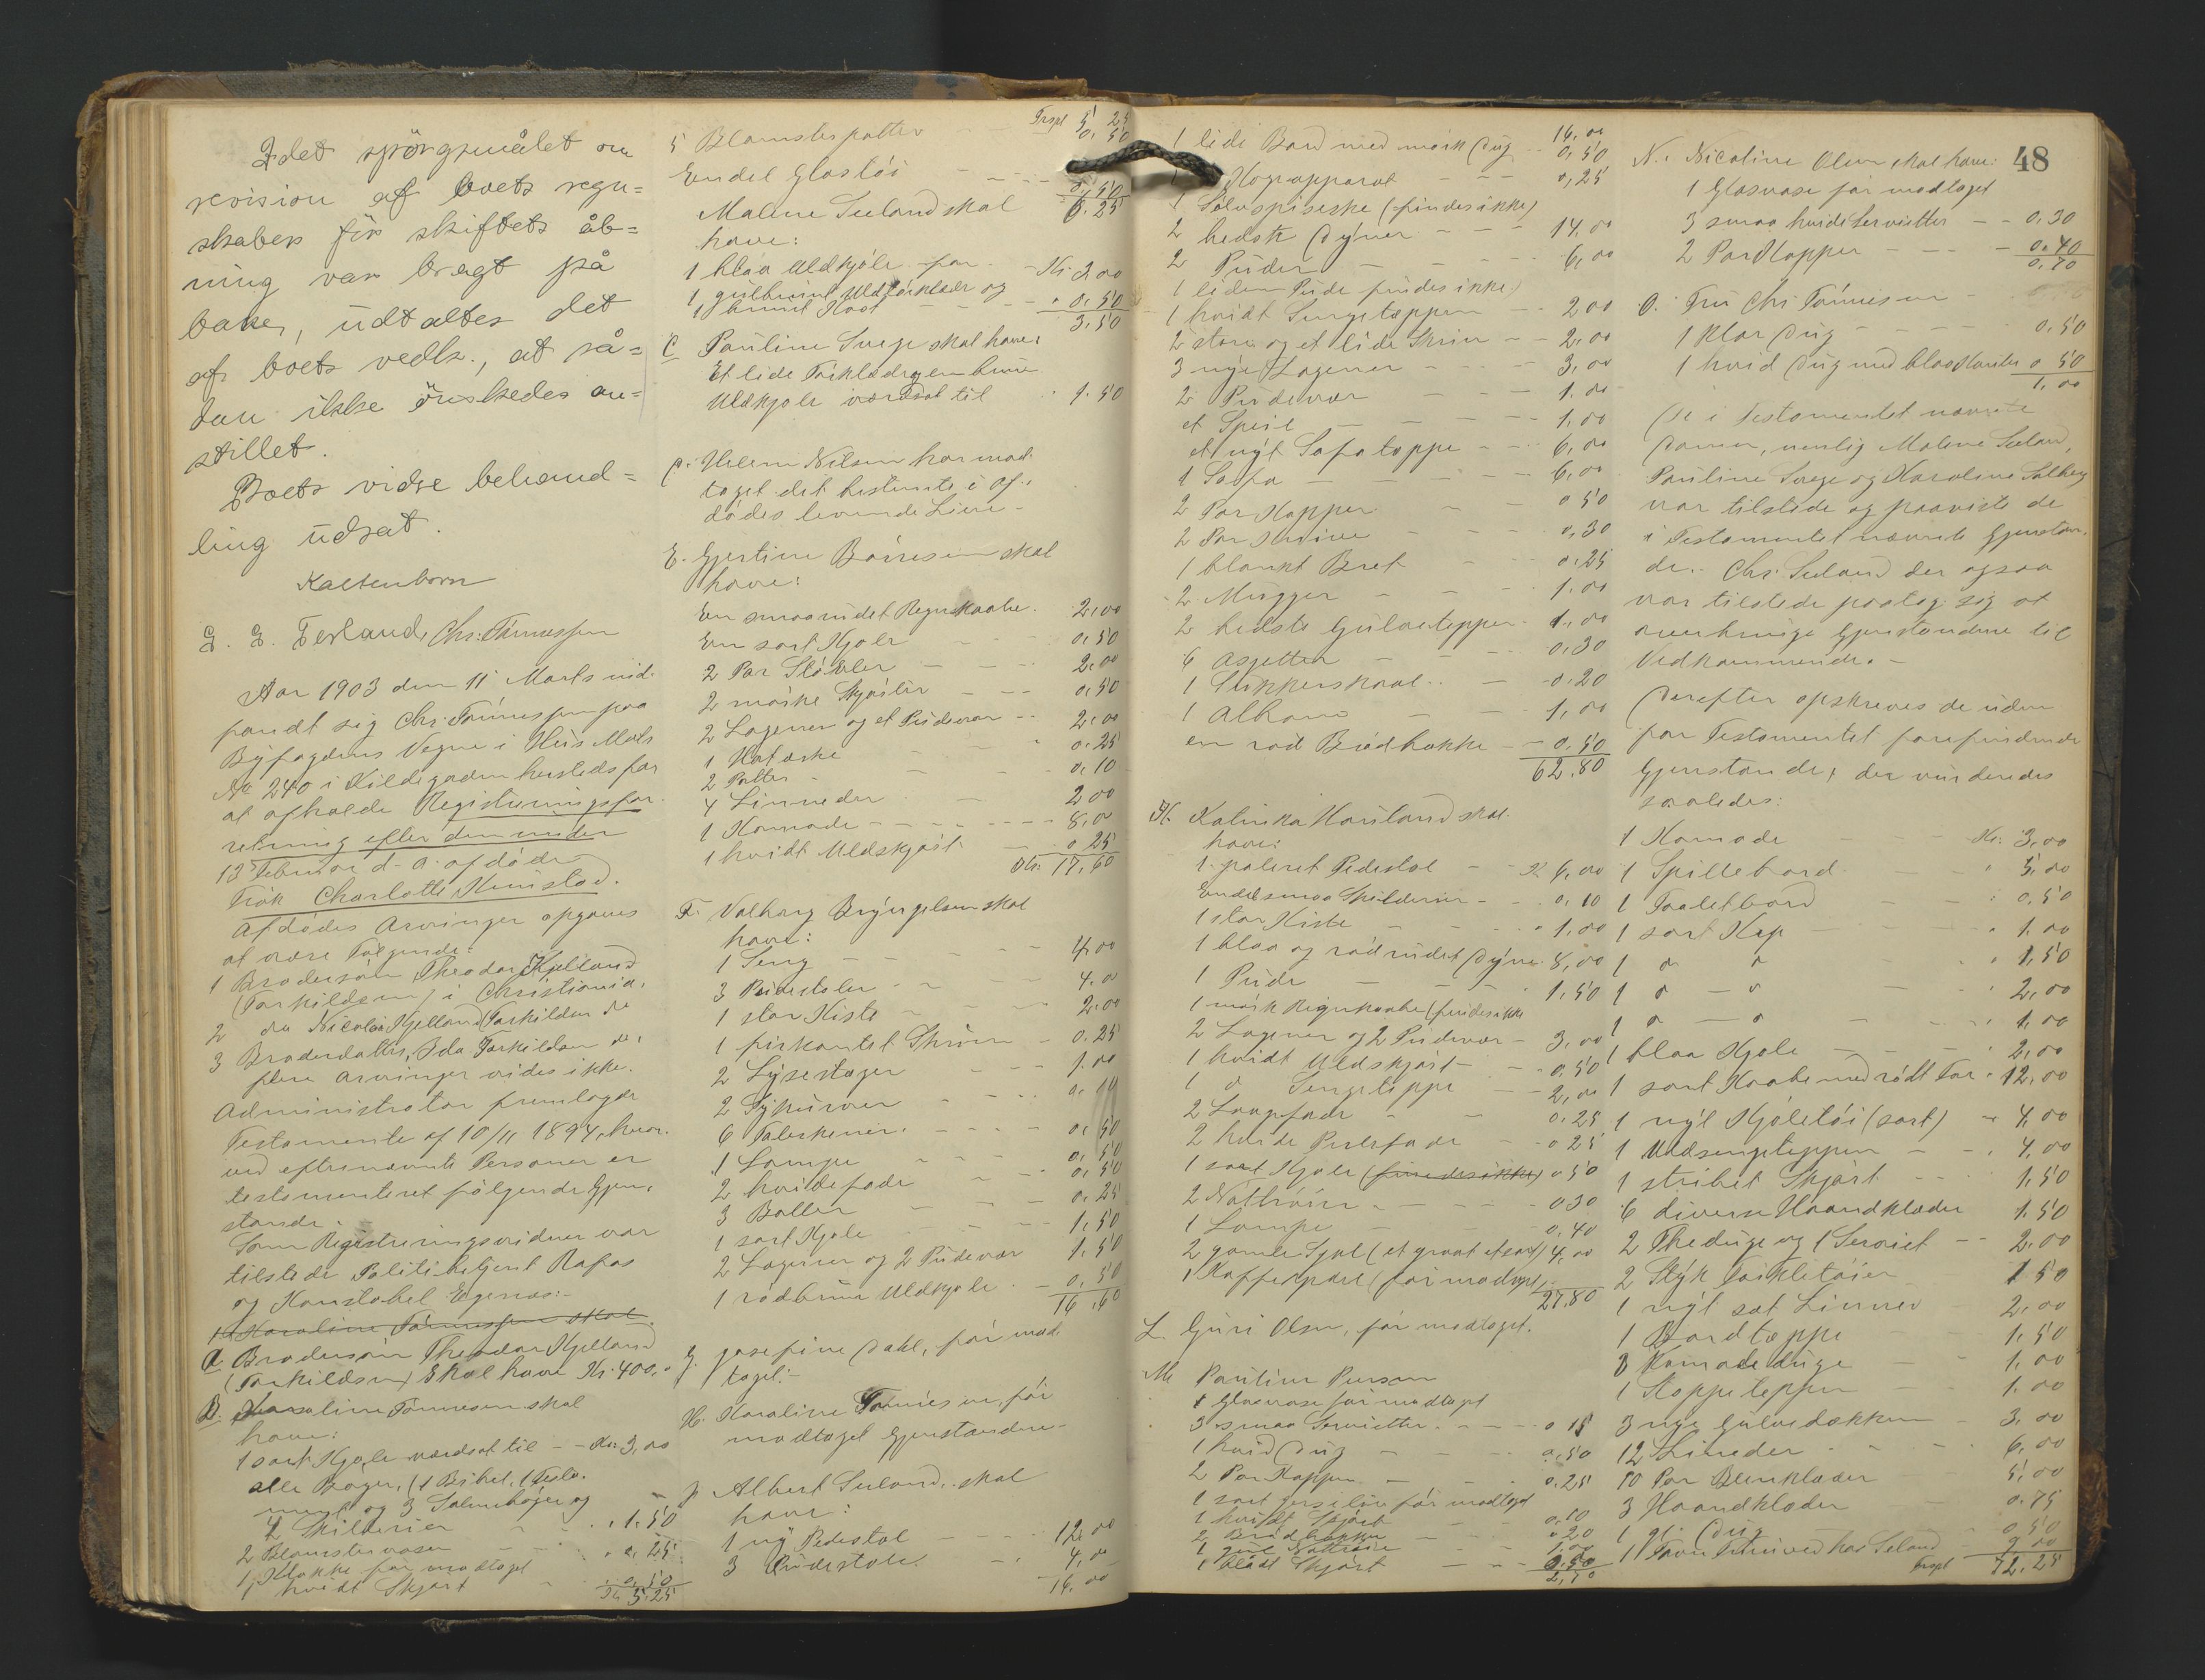 Idet spörgsmålet om
revision af boets regn=
skaber för skiftets åb=
ning var bragt på
bane, udtaltes det
af boets vedk., at så=
dan ikke önskedes an=
stillet.
Boets vidre behand=
ling udsat.
Kaltenborn
G. E. Terland, Chr. Tönnessen
Aar 1903 den 11 Marts ind-
fandt sig Chr. Tönnessen paa
Byfogdens Vegne i Hus Matr
No 240 i Kildegaden hersteds for
at afholde Registreringsfor-
retning efter den under
13 Februar d. a. afdöde
Frök Charlotte
Afdödes Arvinger opgaves
at være Fölgende:
1 Brodersön Theodor Kjelland
(Torkildsen) i Christiania.
2 do Nicolai Kjelland (Torkildsen do
3 Broderdatter, Ida Torkildsen do,
flere Arvinger vides ikke.
Administrator fremlagde
Testamente af 10/11 1894, hvor-
ved efternævnte Personer er
testamenteret fölgende Gjen-
stande.
Som Registreringsvidner var
tilstede Politibetjent Rafos
og Konstabel Egenæs:-
1 Karoline Tönnessen skal
A. Brodersön Theodor Kjelland
(Torkildsen) skal have Kr. 400,-
B. Karoline Tönnesen skal
have:
1 sort Kjole værdsat til - - Kr. 3,00
alle Böger, (1 Bibel, 1 Testa-
ment og 3 Salmeböger og
4 Skilderier - - 1.50
2 Blomstervaser - - 0,25
1 Klokke før modtaget
1 hvidt Skjört - 0,50
Kr. 5,25
Trspt 5 25
5 Blomsterpotter 0. 50
Endel Glastöi - - - 0,50
6.25
Malene Seeland skal
have:
1 blaa Uldkjole for - Kr. 2,00
1 gulbrunt Uldforklæde og
1 brunt - - - 0,50
3,50
C Pauline Svege skal have:
Et lidet Forklæde og en brun
Uldkjole værdsat til - 1.50
D. Helene Nilsen har mod-
taget det bestemte i af-
dödes levende Live -
E. Gjertine Börresen skal
have:
En smaarudet Regnkaabe. 2,00
En sort Kjole - 0,50
2 Par Stövler - - - 2,00
2 mörke Skjörter - - - 0,50
2 Lagener og et Pudevar - - 2,00
1 Hatæske - 0.25
2 Potter - - 0,10
4 Linneder - 2 00
1 Komode - - - 8,00
1 hvidt Uldskjört - 0 25
Kr. 17,60
F. Valborg Bryngelsen skal
have:
1 Seng - - - 4,00
3 Pedestaler - 4.00
1 stor Kiste - 2,00
1 firkantet Skrin - 0.25
2 Lysestager - - - 1.00
2 - - - 0.10
6 Teleskener. - - - 0,50
1 Lampe - - 0,50
2 hvide fade - 0,50
3 Boller - - 0.25
1 sort Kjole - - - 1,50
2 Lagener og 2 Pudevar 1,50
1 rödbrun Uldkjole - 0,50
16,60
G. Josefine Dahl, för mod-
taget:-
H. Karoline Tönnesen, för
modtaget Gjenstandene -
J. Albert Seeland, skal
have:
1 ny Pedestal - - - 12,00
3 - - 4,00
16,00
48
16,00
1 lidet Bord med mörk Dug - - 0,50
1 Kogeapparat - - - 0,25
1 Sölvspiseske (findes ikke)
2 bedste Dyner - - - 14,00
2 Puder - - - 6,00
1 liden Pude findes ikke)
1 hvidt Sengetæppe - - 2 00
2 store og et lidet Skrin - - 2,00
3 nye Lagener - - - 3,00
2 Pudevar - - 1.00
et Speil - - - 1,00
et nyt Sofatæppe - - - 6,00
1 Sofa - - - 6,00
2 Par Kopper - - 0 50
2 Par Knive - - - 0,30
1 blankt Bret - - 0.25
2 Mugger - - - 1.00
2 bedste Gulvtepper - 1,00
6 Asjetter - - - 0,30
1 Sukkerskaal - - 0.20
1 Album - - 1,00
en röd Brödbakke - - 0,50
62,80
K. Kalinka Hauland skal
have:
1 poleret Pedestal - - K 6,00
Endel smaa Skilderier - - 0.10
1 stor Kiste - - 1,00
1 blaa og rödrudet Dyne 8,00
1 Pude - - - 1.50
1 mörk Regnkaabe (findes ikke
2 Lagener og 2 Pudevar - 3,00
1 hvidt Uldskjört - - 0.50
1 do Sengeteppe - - 2,00
2 Lampefade - 0.25
2 hvide - 0 25
1 sort Kjole (findes ikke) 0 50
2 Nattröier - - - 0 30
1 Lampe - - 0,40
2 gamle Sjal (et graat et sort) 4,00
1 Kaffepære (för modtaget)
27,80
L Guri Olsen, för modtaget.
M. Pauline
1 Glasvase för modtaget
3 smaa Servietter - - - 0 15
1 hvid Dug - - 0,50
2 Par Kopper - - 0.25
1 sort för modtaget
1 hvidt Skjört - 0.10
2 Brödbakker - - 0 20
1 gul Nattröie - 1,00
1 blaat Skjört - - 0,50
2,70
N. Nicoline Olsen skal have:
1 Glasvase för modtaget
3 smaa hvide Servietter - - 0.30
2 Par Kopper - - 0.40
0.70
O. Fru Chr. Tönnesen -
1 stor Dug - - - 0,50
1 hvid Dug med blaa Kanter 0 50
1,00
De i Testamentet nævnte
Damer, nemlig Malene Seeland,
Pauline Svege og Karoline Solberg
var tilstede og paaviste de
i Testamentet nævnte Gjenstan-
de. - Chr. Seeland der ogsaa
var tilstede paatog sig at
overbringe Gjenstandene til
Vedkommende. -
Derefter opskreves de uden
for Testamentet forefindende
Gjenstande, der vurderedes
saaledes:
1 Komode - - Kr. 3,00
1 Spillebord - - 5,00
1 Toiletbord - - 0,50
1 sort Kep - - 1.00
1 do do - 1,50
1 do - do - 2,00
1 do - do - 1,00
1 blaa Kjole - - 2,00
1 sort Kaabe med rödt For - 12,00
1 nyt Kjoletöi (sort) - 4,00
1 Uldsengeteppe - - 4,00
1 stribet Skjört - - 1,50
6 diverse Haandklæder 1.50
2 Theduge og 1 Serviet - - 2.00
2 Styk 1 50
1 nyt sæt Linned - 2,00
1 Bordtæppe - - 1,50
3 Komodeduge - - 1,00
1 Stoppeteppe - - 1.00
3 nye Gulvdækken - 3,00
12 Linneder - - 6,00
10 Par Benklæder 5,00
3 Haandklæder - 0.75
1 gl. Dug - - 0 50
1 Favn hos Seland - 9 00
Trspt 72.25